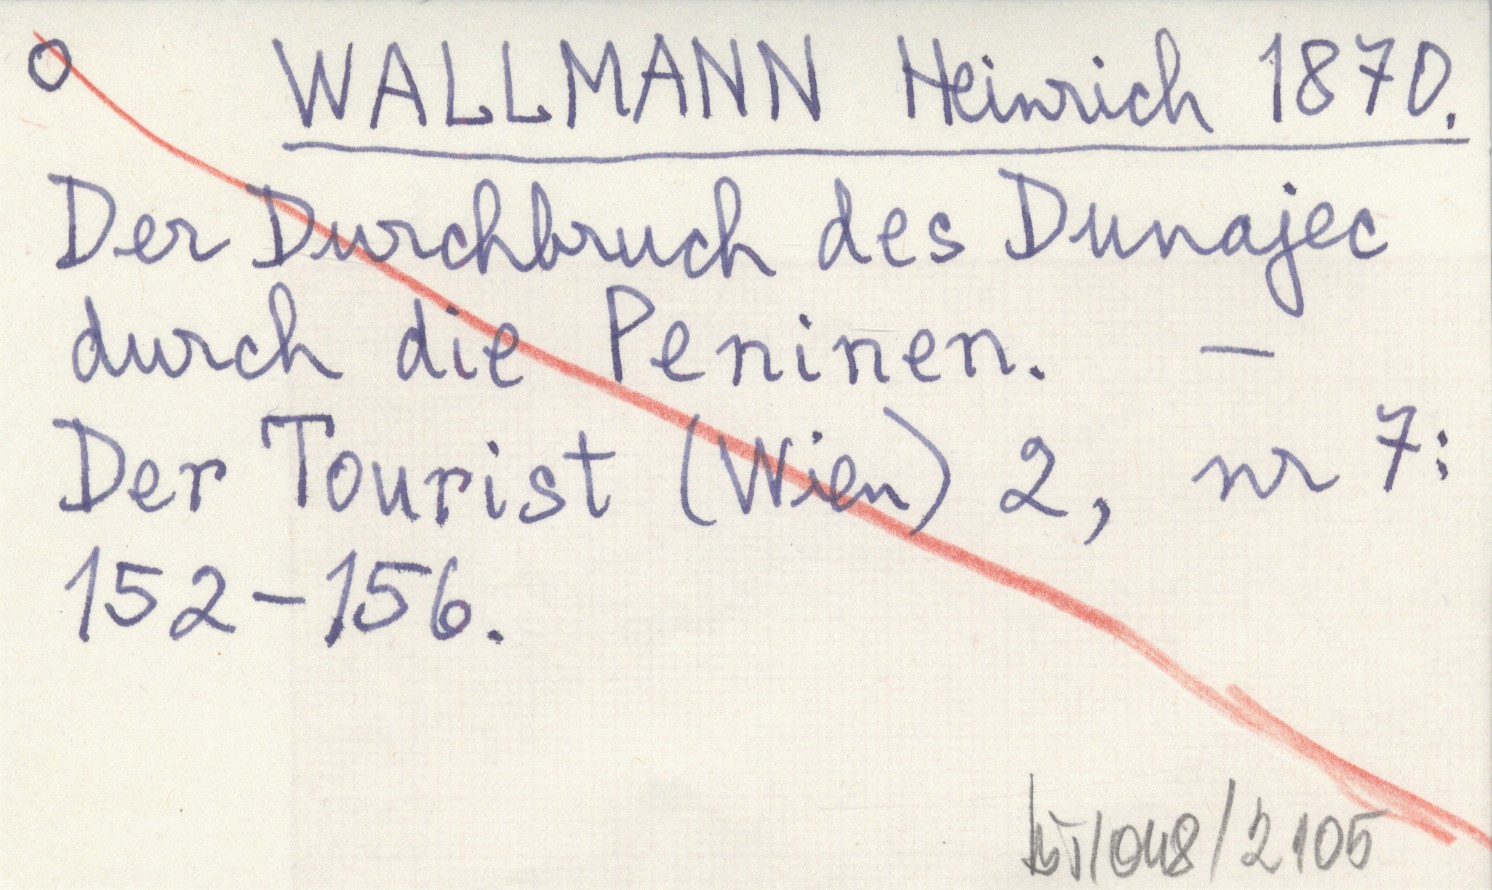 WALLMANN Heinrich 1870.
Der Durchbruch des Dunajec
durch die Peninen. —
Der Tourist (Wien) 2, nr 7:
152-156.
/048/2105